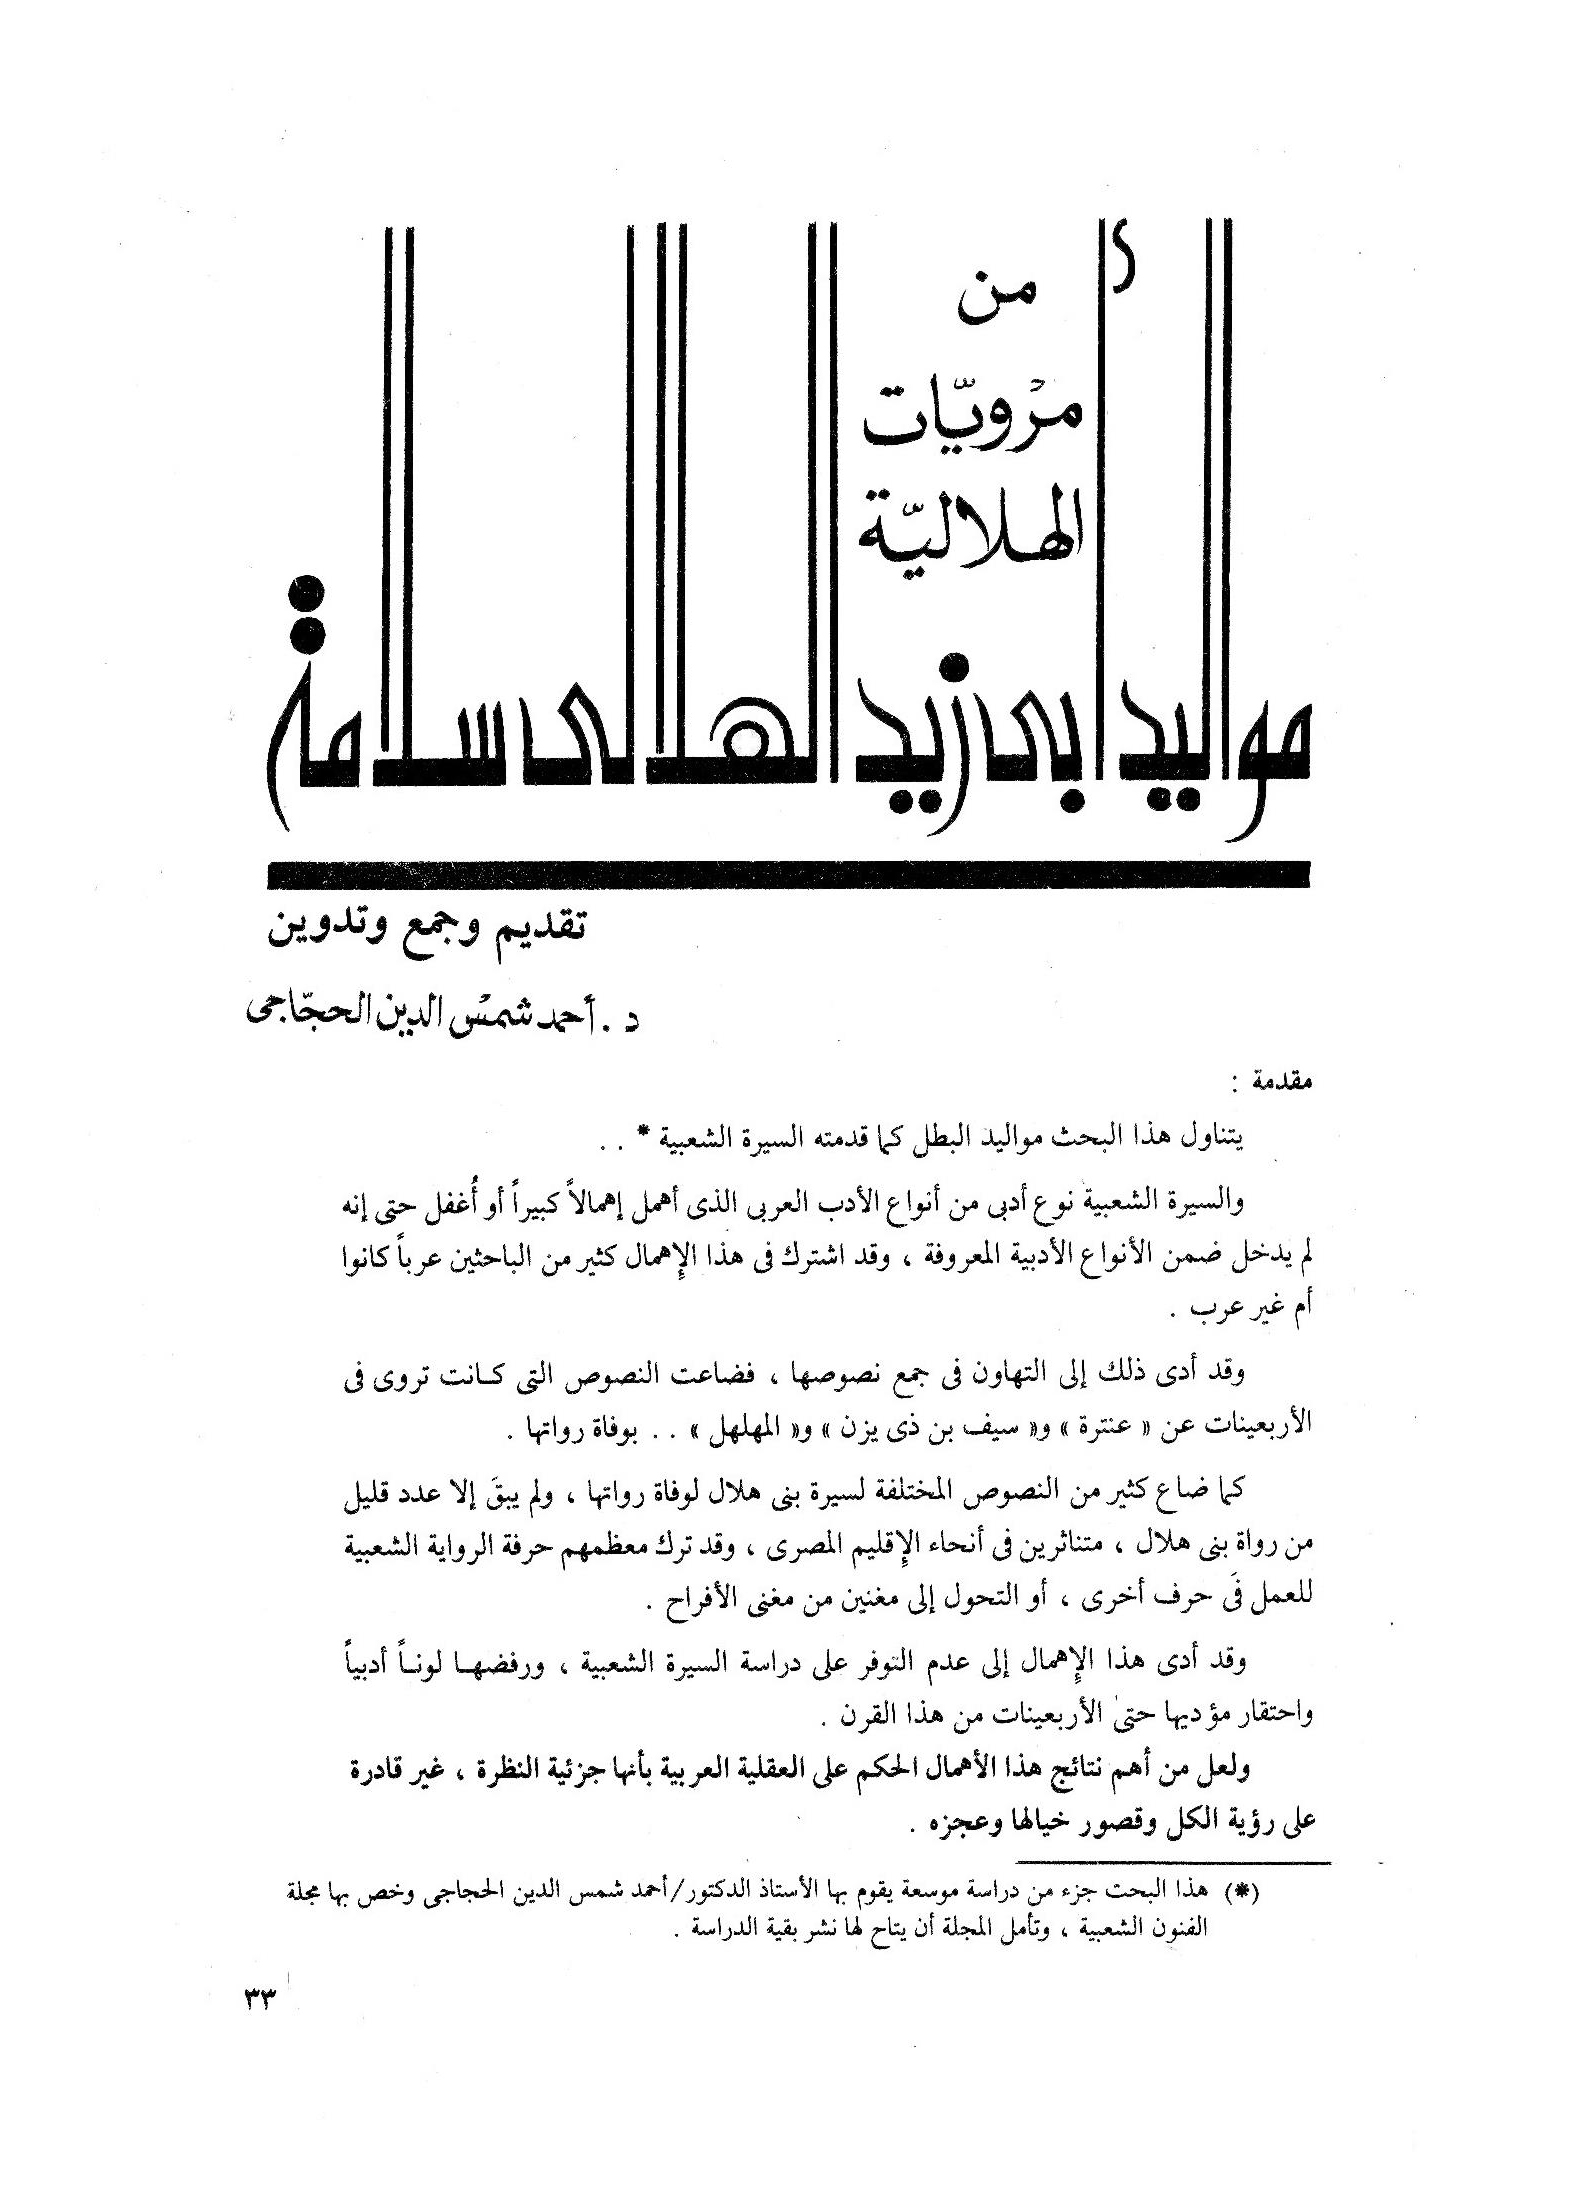 من
مرْويّات
الهلاليّة
مواليد أبى زيد الهلالى سلامة
تقديم وجمع وتدوين
د . أحمد شمسْ الدين الحجّاجى
مقدمة :
يتناول هذا البحث مواليد البطل كما قدمته السيرة الشعبية * . .
والسيرة الشعبية نوع أدبى من أنواع الأدب العربى الذى أهمل إهمالاً كبيراً أو أُغفل حتى إنه
لم يدخل ضمن الأنواع الأدبية المعروفة ، وقد اشترك فى هذا الإهمال كثير من الباحثين عرباً كانوا
أم غير عرب .
وقد أدى ذلك إلى التهاون فى جمع نصوصها ، فضاعت النصوص التى كـانت تروى فى
الأربعينات عن « عنترة » و« سيف بن ذى يزن » و« المهلهل » . . بوفاة رواتها .
كما ضاع كثير من النصوص المختلفة لسيرة بنى هلال لوفاة رواتها ، ولم يبقَ إلا عدد قليل
من رواة بنى هلال ، متناثرين فى أنحاء الإقليم المصرى ، وقد ترك معظمهم حرفة الرواية الشعبية
للعمل فَى حرف أخرى ، أو التحول إلى مغنين من مغنى الأفراح .
وقد أدى هذا الإهمال إلى عدم التوفر على دراسة السيرة الشعبية ، ورفضهـا لونـاً أدبياً
واحتقار مؤديها حتى الأربعينات من هذا القرن .
ولعل من أهم نتائج هذا الأهمال الحكم على العقلية العربية بأنها جزئية النظرة ، غير قادرة
على رؤية الكل وقصور خيالها وعجزه .
(*) هذا البحث جزء من دراسة موسعة يقوم بها الأستاذ الدكتور/أحمد شمس الدين الحجاجى وخص بها مجلة
الفنون الشعبية ، وتأمل المجلة أن يتاح لها نشر بقية الدراسة .
٣٣